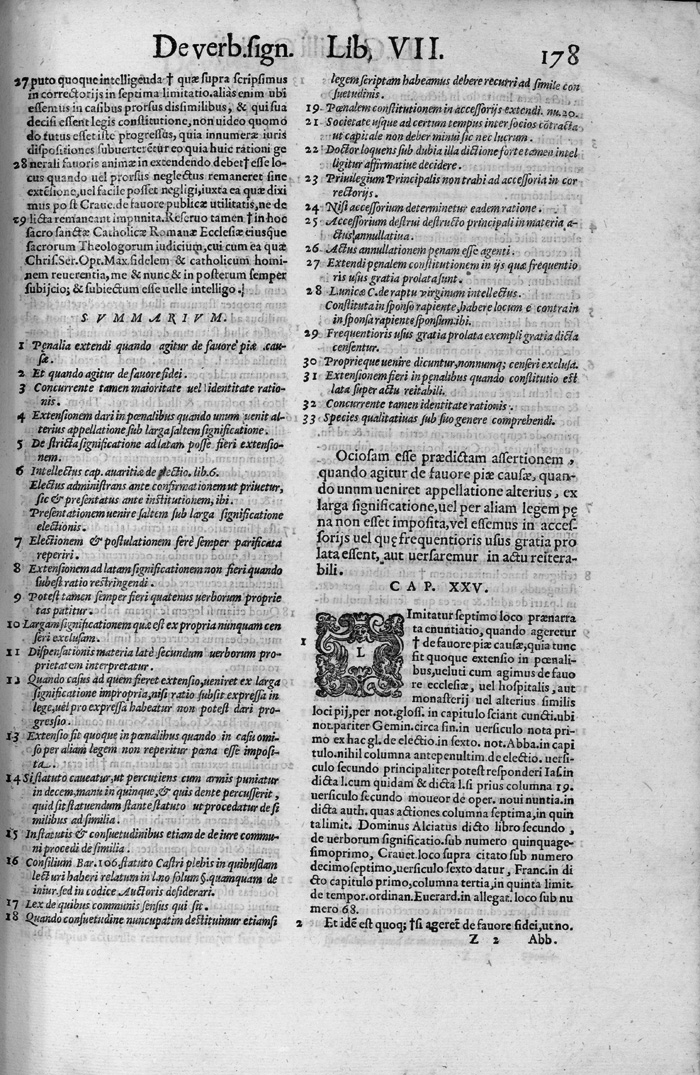 De verb. sign. Lib, VII. 178
27 puto quoque intelligenda † quæ supra scripsimus
in correctorijs in septima limitatio. alias enim ubi
essemus in casibus prorsus dissimilibus, & qui sua
decisi essent legis constitutione, non uideo quomo
do tutus esset iste progressus, quia innumeræ iuris
dispositiones subuerterētur eo quia huic rationi ge
28 nerali fauoris animæ in extendendo debet† esse lo-
cus quando uel prorsus neglectus remaneret sine
extēsione, uel facile posset negligi, iuxta ea quæ dixi
mus post Crauc. de fauore publicæ utilitatis, ne de
29 licta remaneant impunita. Reseruo tamen † in hoc
sacro sanctæ Catholicæ Romanæ Ecclesiæ eiusque
sacrorum Theologorum iudicium, cui cum ea quæ
Chris. Ser. Opt. Max. fidelem & catholicum homi
nem reuerentia, me & nunc & in posterum semper
subijcio, & subiectum esse uelle intelligo.
SVMMARIVM.
1 Penalia extendi quando agitur de fauore piæ cau-
sæ.
2 Et quando agitur de fauore fidei.
3 Concurrente tamen maioritate uel identitate ratio-
nis.
4 Extensionem dari in pœnalibus quando unum uenit al-
terius appellatione sub larga saltem significatione.
5 De stricta significatione ad latam posse fieri extensio-
nem.
6 Intellectus cap. auaritiæ de electio. lib. 6.
Electus administrans ante confirmationem ut priuetur,
sic & presentatus ante institutionem, ibi.
Presentationem uenire saltem sub larga significatione
electionis.
7 Electionem & postulationem ferè semper parificata
reperiri.
8 Extensionem ad latam significationem non fieri quando
subest ratio restringendi.
9 Potest tamen semper fieri quatenus uerborum proprie
tas patitur.
10 Largam significationem quæ est ex propria nunquam cen
seri exclusam.
11 Dispensationis materia latè secundum uerborum pro-
prietatem interpretatur.
12 Quando casus ad quem fieret extensio, ueniret ex larga
significatione impropria, nisi ratio subsit expressa in
lege, uel pro expressa habeatur non potest dari pro-
gressio.
13 Extensio sit quoque in pœnalibus quando in casu omi-
so per aliam legem non reperitur pœna esse imposi-
ta.
14 Si statuto caueatur, ut percutiens cum armis puniatur
in decem, manu in quinque, & quis dente percusserit,
quid sit statuendum stante statuto ut procedatur de si
milibus ad similia.
15 In statutis & consuetudinibus etiam de de iure commu-
ni procedi de similia.
16 Consilium Bar. 106. statuto Castri plebis in quibusdam
lecturi haberi relatum in l. no solum §. quamquam de
iniur. sed in codice Auctoris desiderari.
17 Lex de quibus communis sensus qui sit.
18 Quando consuetudine nuncupatim destituimur etiamsi
legem scriptam habeamus debere recurri ad simile con
suetudinis.
19 Pœnalem constitutionem in accessorijs extendi. nu. 20.
21 Societate usque ad certum tempus inter socios cōtracta
ut capitale non deber minui sic nec lucrum.
22 Doctor loquens sub dubia illa dictione forte tamen intel
ligitur affirmatiue decidere.
23 Priuilegium Principalis non trahi ad accessoria in cor
rectorijs.
24 Nisi accessorium determinetur eadem ratione.
25 Accessorium destrui destructo principali in materia a-
ctus annullatiua.
26 Actus annullationem pœnam esse agenti.
27 Extendi pœnalem constitutionem in ijs quæ frequentio
ris usus gratia prolata sunt.
28 L. unicæ C. de raptu virginum intellectus.
Constituta in sponso rapiente, habere locum e contrain
in sponsa rapiente sponsum. ibi.
29 Frequentioris usus gratia prolata exempli gratia dicta
censentur.
30 Proprie que uenire dicuntur, nonnumq; censeri exclusa.
31 Extensionem fieri in pœnalibus quando constitutio est
lata super actu reitabili.
32 Concurrente tamen identitate rationis.
33 Species qualitatiuas sub suo genere comprehendi.
Ociosam esse prædictam assertionem,
quando agitur de fauore piæ causæ, quan-
do unum ueniret appellatione alterius, ex
larga significatione, uel per aliam legem pę
na non esset imposita, vel essemus in acces-
sorijs uel quę frequentioris usus gratia pro
lata essent, aut uersaremur in actu reitera-
bili.
CAP. XXV.
1 LImitatur septimo loco prænarra
ta enuntiatio, quando ageretur
† de fauore piæ causæ, quia tunc
sit quoque extensio in pœnali-
bus, ueluti cum agimus de fauo
re ecclesiæ, uel hospitalis, aut
monasterij uel alterius similis
loci pij, per not. gloss. in capitulo sciant cuncti. ubi
not. pariter Gemin. circa fin. in uersiculo nota pri
mo ex hac gl. de electio. in sexto. not. Abba. in capi
tulo. nihil columna antepenultim. de electio. uersi-
culo secundo principaliter potest responderi Ias. in
dicta l. cum quidam & dicta l. si prius columna 19.
uersiculo secundo moueor de oper. noui nuntia. in
dicta auth. quas actiones columna septima, in quin
ta limit. Dominus Alciatus dicto libro secundo,
de uerborum significatio. sub numero quinquage-
simoprimo, Crauet. loco supra citato sub numero
decimoseptimo, uersiculo sexto datur, Franc. in di
cto capitulo primo, columna tertia, in quinta limit.
de tempor. ordinan. Euerard. in allegat. loco sub nu
mero 68.
2 Et idē est quoq; †si ageret̃ de fauore fidei, ut no.
Z 2 Abb.